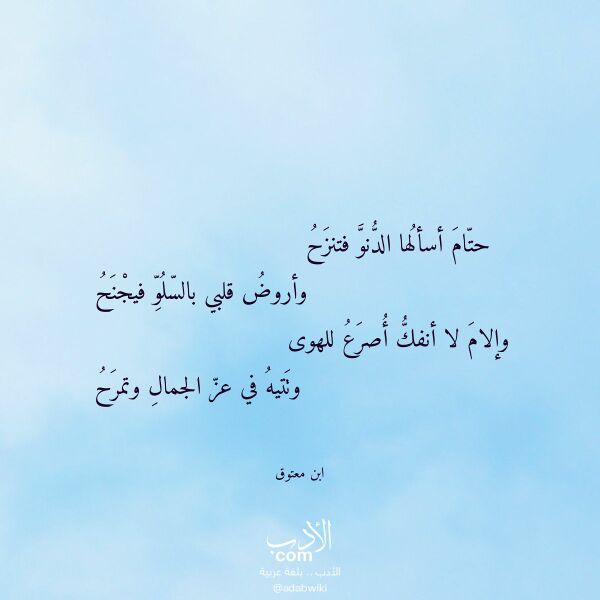 حتّامَ أسألُها الدُّنوَّ فتنزَحُ
وأروضُ قلبي بالسّلُوِّ فيجْنَحُ
وإلامَ لا أنفكُّ أُصرَعُ للهوى
وتَتيهُ في عزّ الجمالِ وتمرَحُ
ابن معتوق
الأدب
com
الأدب .. بلغة عربية
@adabwiki